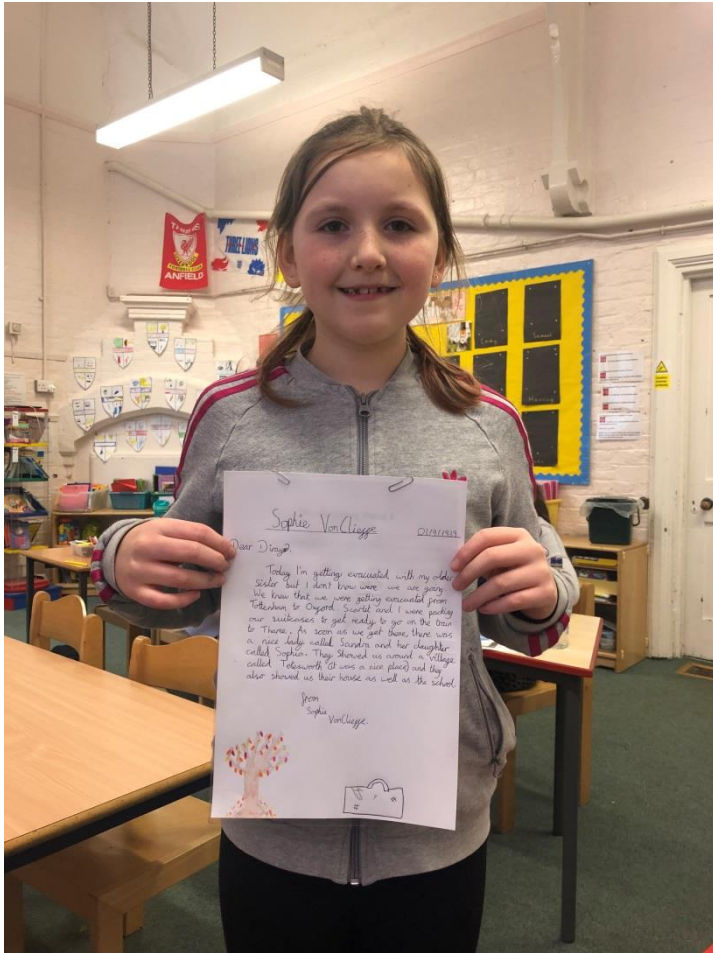 THIS IS
ANFIELD
THREE LIONS
Sophie VonCliegge
01/9/1939
Dear Diray,
Today I'm getting evacuated with my older
sister but I don't know were we are going.
We knew that we were getting evacuated from
Tottenham to Oxford. Scarlet and I were packing
our suitcases to get ready to go on the train
to Thame. As soon as we got there, there was
a nice lady called Sandra and her daughter
called Sophia. They showed us around a village
called Tetsworth (it was a nice place) and they
also showed us their house as well as the school
from
Sophie
VonCliegge.